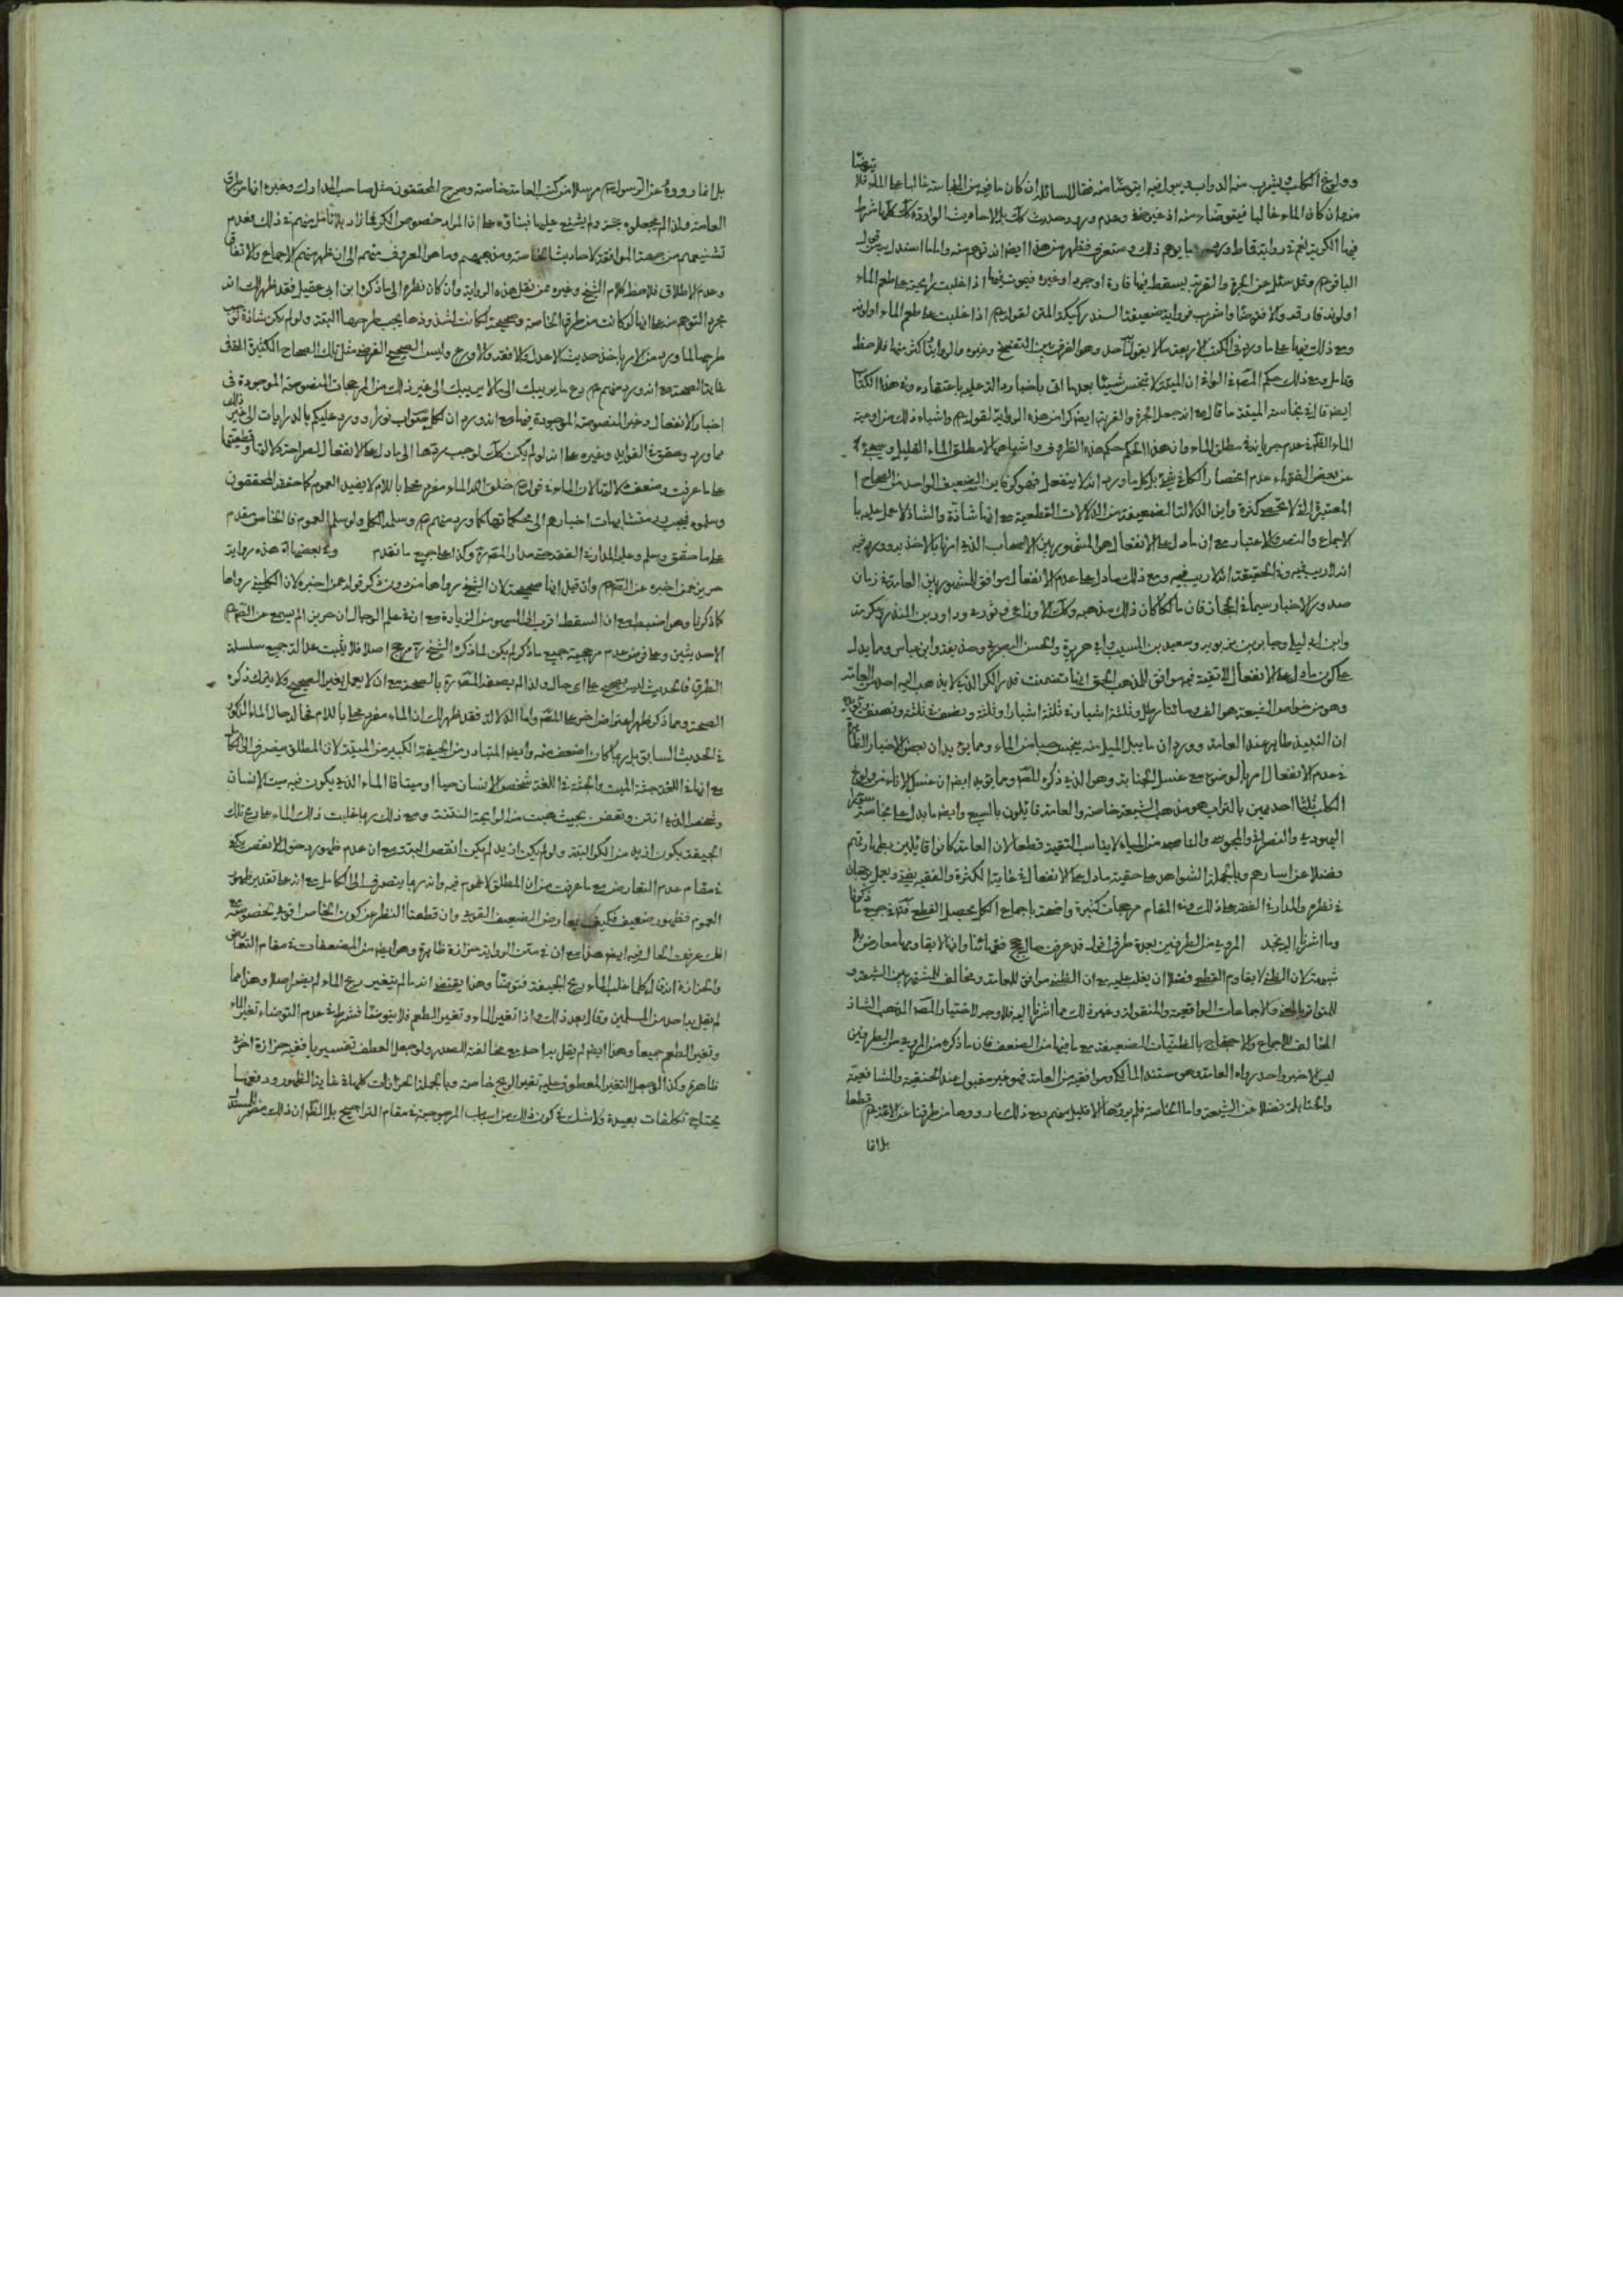 وولوغ الكلب ويشرب منه الدواب ويبول فيه ايتوضأ منه فقال لسائله ان كان ما فيه من النجاسة غالبا على الماء فلا يتوضأ
منه وان كان الماء غالبا فيتوضأ منه اذ غير وعدم ورود حديث كك بل الاحاديث الواردة كك كلها شرط
فيها الكرية نعم في رواية قاطو يوهم ذلك وستعرف فظهر من هذا ايضا انه توهم منه واما ما استدل به من قول
الباقر ع وقد سئل عن الجرة والقربة يسقط فيها فارة او جرذ او غيره فيموت فيها اذا غلبت رائحته على طعم الماء
او لونه فارقه والا فتوضأ واشرب فرواية ضعيفة السند ركيكة المتن لقوله ع اذا غلبت على طعم الماء او لونه
ومع ذلك فيها على ما ورد في الكتب الاربعة ما لا يقول به احد وهو الفرق بين التفسخ وغيره والرواية اكثر منها فلاحظ
وتأمل ومع ذلك حكم المص في الوافي ان الميتة لا تنجس شيئا بعد ما اتى باخبار دالة عليه باعتقاده وفي هذا الكتاب
ايضا قال في نجاسة الميتة ما قال مع انه جعل الجرة والقربة ايضا كرا من هذه الرواية لقوله ع واشباه ذلك من اوعية
الماء عدم جريانه في مطلق الماء وان هذا الحكم حكم هذه الظروف واشباهها لا مطلق الماء القليل وسيجئ
عن بعض الفقهاء عدم انحصار الكر في شيء بل كل ما ورد انه لا ينفعل فهو كر فاين الضعيف الواحد من الصحاح
المعتبرة التي لا تحصى كثرة واين الدلالة الضعيفة من الدلالات القطعية مع انها شاذة والشاذ لا عمل عليه
الاجماع والنص والاعتبار مع ان ما دل على الانفعال هو المشهور بين الاصحاب الذي امرنا بالاخذ به وورد فيه
انه لا ريب فيه وفي الحقيقة انه لا ريب فيه ومع ذلك ما دل على عدم الانفعال موافق للمشهور بين العامة في زمان
صدور الاخبار سيما في الحجاز فان مالكا كان ذلك مذهبه وكك الاوزاعي وثوري وداود بن المنذر وعكرمة
وابن ابي ليلى وجابر بن يزيد وسعيد بن المسيب وابي هريرة والحسن البصري وحذيفة وابن عباس ومما يدل
على كون ما دل على الانفعال لا تقية فيه موافق للمذهب الحق انها تضمنت قدر الكر الذي لا يذهب اليه احد من العامة
وهو من خواص الشيعة هو الف ومائتا رطل وثلثة اشبار في ثلثة اشبار او ثلثة ونصف في ثلثة ونصف
ان النبيذ طاهر عند العامة وورد ان ما يبل الميل منه ينجس حبا من الماء ومما يؤيد ان بعض الاخبار الظاهرة
في عدم الانفعال امر بالوضوء مع غسل الجنابة وهو الذي ذكره المص ومما يؤيد ايضا ان غسل الاناء من ولوغ
الكلب ثلثا احديهن بالتراب هو مذهب الشيعة خاصة والعامة قائلون بالسبع وايضا ما يدل على نجاسة سؤر
اليهودي والنصراني والمجوسي والناصب من المياه لا يناسب التقية قطعا لان العامة كانوا قائلين بطهارتهم
وفضلا عن اسارهم وبالجملة الشواهد على حقية ما دل على الانفعال في غاية الكثرة والفقيه يفتي ويعمل برجحان
في نظره والمدار في الفقه على ذلك وفي المقام مرجحات كثيرة واضحة باجماع الكل يحصل القطع فتأمل في جميع ما ذكرنا
وما اشرنا اليه تجد المروي من الطرفين بعدة طرق اقول قد عرفت حال حجج فقهائنا وانها لا يقاومها معارض بلا
شبهة لان الظني لا يقاوم القطعي فضلا ان يغلب عليه مع ان الظني موافق للعامة ومخالف للمشتهر بين الشيعة و
للمتواتر والاجماعات الواقعية والمنقولة وغير ذلك مما اشرنا اليه فلا وجه لاختيار المص المذهب الشاذ
المخالف للاجماع والاحتجاج بالظنيات الضعيفة مع ما فيها من الضعف فان ما ذكره من المروية من الطرفين
ليس الا خبر واحد رواه العامة وهو مستند المالكي وموافقيه من العامة فهو غير مقبول عند الحنفية والشافعية
والحنابلة فضلا عن الشيعة واما الخاصة فلم يرووها الا قليل منهم ومع ذلك ما رووها من طرقنا عن الائمة ع قطعا
بل انما
بل انما رووه عن الرسول ص مرسلا من كتب العامة خاصة وصرح المحققون مثل صاحب المدارك وغيره انها من طرق
العامة ولذا لم يجعلوه حجة ولم يشنع عليها فبناؤه على ان المراد خصوص الكر فما زاد بلا تأمل منهم في ذلك فعدم
تشنيعهم من جهة الموافقة لاحاديث الخاصة ومذهبهم وما هو المعروف منهم الى ان ظهر منهم الاجماع والاتفاق
وعدم الاطلاق فلاحظ كلام الشيخ وغيره ممن نقل هذه الرواية وان كان نظره الى ما ذكره ابن ابي عقيل فقد ظهر لك انه
مجرد التوهم منه على انها لو كانت من طرق الخاصة وصحيحة لكانت لشذوذها يجب طرحها البتة ولو لم يكن شاذة لوجب
طرحها لما ورد من الامر باخذ حديث الاعدل والافقه والاورع وليس الصحيح الفرضي مثل تلك الصحاح الكثيرة التي في
غاية الصحة مع انه ورد منهم ع دع ما يريبك الى ما لا يريبك الى غير ذلك من المرجحات المنصوصة الموجودة في
اخبار الانفعال وغير المنصوصة الموجودة فيها مع انه ورد ان لكل صواب نورا وورد عليكم بالدرايات الى غير ذلك
مما ورد وحقق في الفوايد وغيره على انه لو لم يكن كك لوجب ردها الى ما دل على الانفعال لصراحة دلالتها وقطعيتها
على ما عرفت وضعف دلالتها لان الماء في قوله ع خلق الله الماء مفرد محلى باللام لا يفيد العموم كما حققه المحققون
وسلموه فيجب رد متشابهات اخبارهم الى محكماتها كما ورد منهم ع وسلمه الكل ولو سلم العموم فالخاص مقدم
على ما حقق وسلم وعليه المدار في الفقه حتى مدار المص ره وكذا على جميع ما تقدم وفي بعضها اه هذه رواية
حريز عمن اخبره عن الصادق ع وان قيل انها صحيحة لان الشيخ رواها من دون ذكر قوله عمن اخبره لان الكليني رواها
كما ذكرنا وهو اضبط مع ان السقط اقرب الى السهو من الزيادة مع ان في علم الرجال ان حريز لم يسمع عن الصادق ع
الا حديثين وعلى فرض عدم مرجحية جميع ما ذكر لم يكن لما ذكره الشيخ ره مرجح اصلا فلا يثبت عدالة جميع سلسلة
الطرق فالحديث ليس بصحيح على اي حال ولذا لم يصفه المص ره بالصحة مع ان لا يعمل بغير الصحيح ولا يترك ذكره
الصحة ومما ذكر ظهر اعتراض اخر على المص واما الدلالة فقد ظهر لك ان الماء مفرد محلى باللام فحاله حال الماء المذكور
في الحديث السابق بل ربما كان اضعف منه وايضا المتبادر من الجيفة الكبير من الميتة لان المطلق ينصرف الى الكامل
مع انها في اللغة جثة الميت والجثة في اللغة شخص الانسان حيا او ميتا فالماء الذي يكون فيه ميت الانسان
وشخصه الذي انتن وتعفن بحيث هبت منه الرايحة النتنة ومع ذلك ربما غلبت ذلك الماء على ريح تلك
الجيفة يكون ازيد من الكر البتة ولو لم يكن ازيد لم يكن انقص البتة مع ان عدم ظهوره حتى الانقص يكفي
في مقام عدم التعارض مع ما عرفت من ان المطلق لا عموم فيه وانه ربما ينصرف الى الكامل مع انه على تقدير ظهور
العموم فظهور ضعيف فكيف يعارض الضعيف القوي وان قطعنا النظر عن كون الخاص اقوى لخصوصه مع
انك عرفت الحال فيه ايضا هذا مع ان في متن الرواية حزازة ظاهرة وهو ايضا من المضعفات في مقام التعارض
والحزازة انه قال كلما غلب الماء ريح الجيفة فتوضأ وهذا يقتضي انه ما لم يتغير ريح الماء لم يضر اصلا وهذا مما
لم يقل به احد من المسلمين وقال بعد ذلك واذا تغير الماء وتغير الطعم فلا يتوضأ فشرط في عدم التوضاء تغير الماء
وتغير الطعم جميعا وهذا ايضا لم يقل به احد مع مخالفته للصدر ولو جعل العطف تفسيريا ففيه حزازة اخرى
ظاهرة وكذا لو جعل التغير المعطوف عليه تغير الريح خاصة وبالجملة الحزازات كلها في غاية الظهور ودفعها
يحتاج تكلفات بعيدة ولا شك في كون ذلك من اسباب المرجوحية في مقام التراجيح